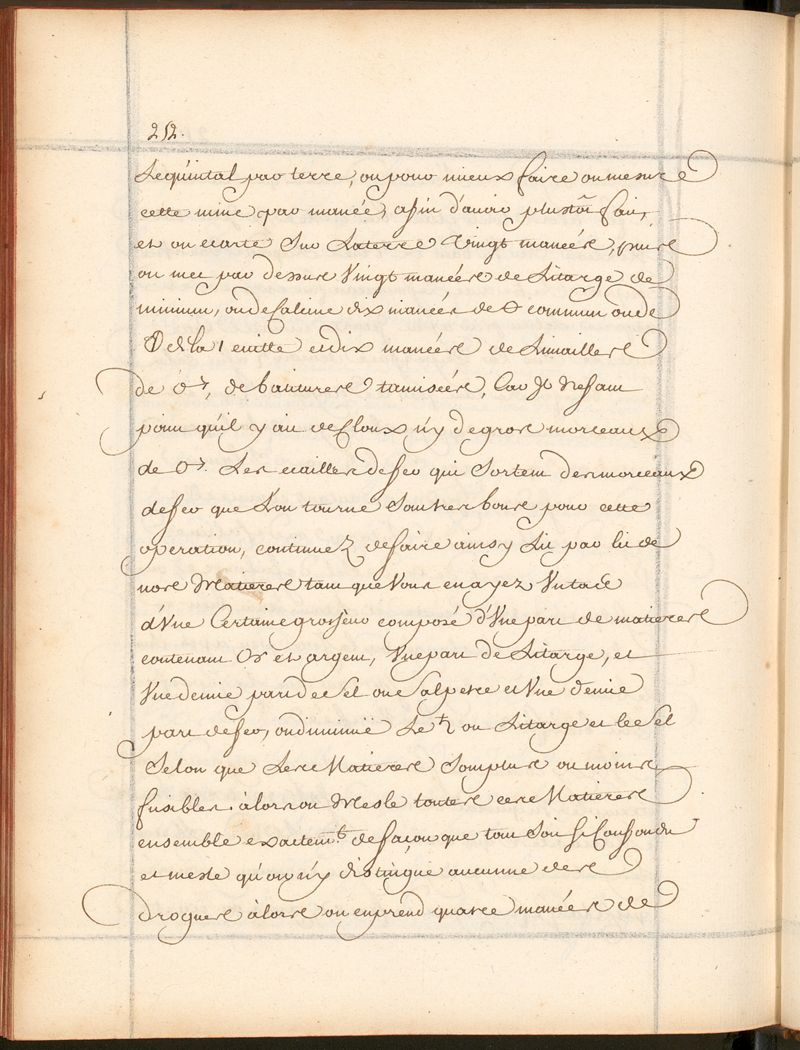 252.
Le quintal par terre, ou pour mieux faire on mesure
cette mine par manée, afin d'avoir plustôt fait,
et on ecarte sur La terre Vingt manéés, puis
on met par dessus Vingt manéés de Litarge de
minium, ou de Calcine dix manées de commun ou de
de la et dix manéés de Limailles
de ♂, de batitures tamiséés, Car Jl ne faut
point qu'il y ait de Cloux n'y de gros morceaux
de ♂. Les ecailles de fer qui Sortent des morceaux
de fer que L'on tourne Sont tres bons pour cette
operation, continuez de faire ainsy Lit par lit de
nos Matieres tant que Vous en ayez Un tas
d'Vne Certaine grosseur composé d'Vne part de matieres
contenant Or et argent, Vne part de Litarge, et
Vne demie part de Sel ou Salpetre et Vne demie
part de fer, on diminüe Le ♄ ou Litarge et le Sel
Selon que Les Matieres Sont plus ou moins
fusibles. àlors on Mesle toutes ces Matieres
ensemble exactemt. de façon que tout Soit si Confondu
et mesle qu'on n'y distingue aucunne des
drogues àlors on en prend quatre manéés de